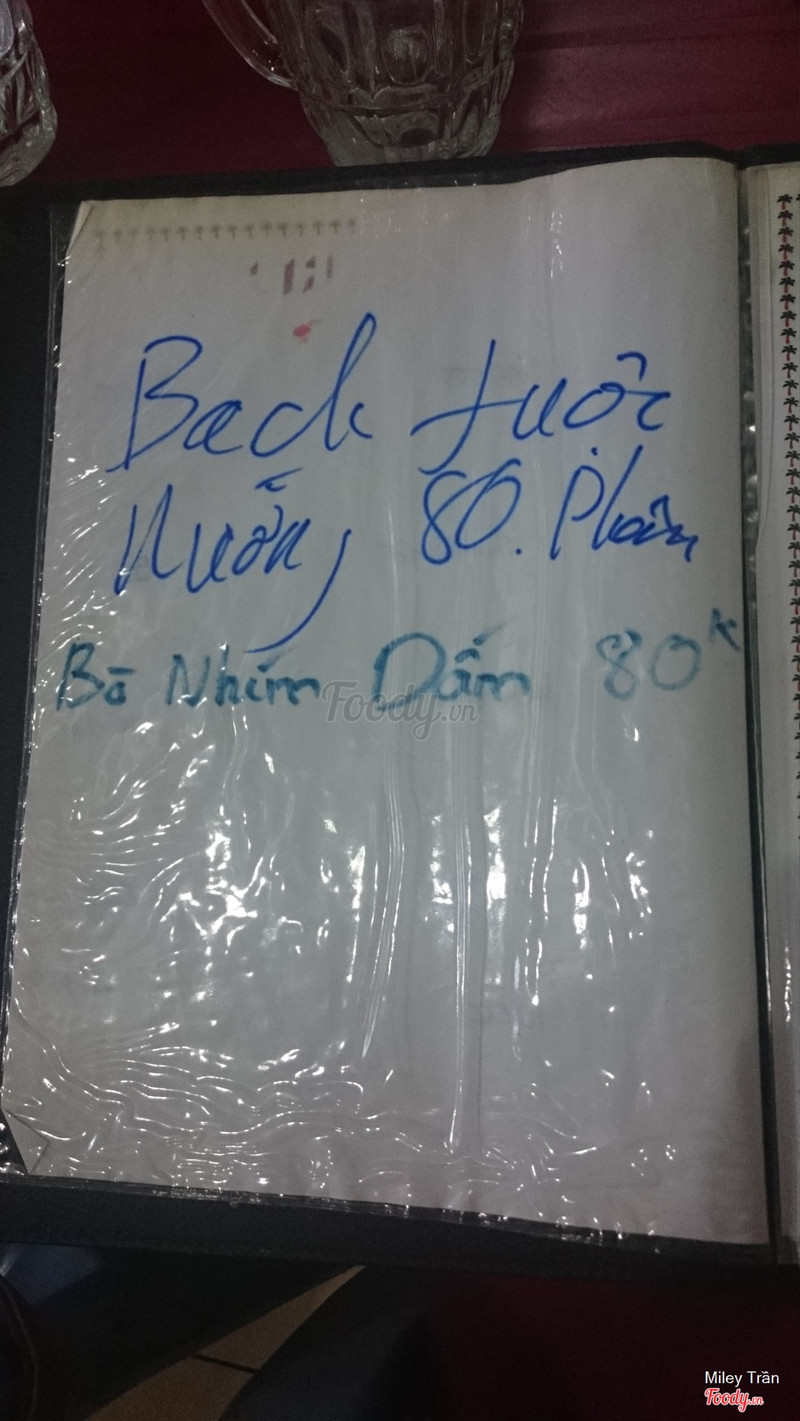 Bạch tuộc
Nướng 80. Phần
Bò Nhúm Dấm 80k
Foody.vn
Miley Trần
Foody.vn